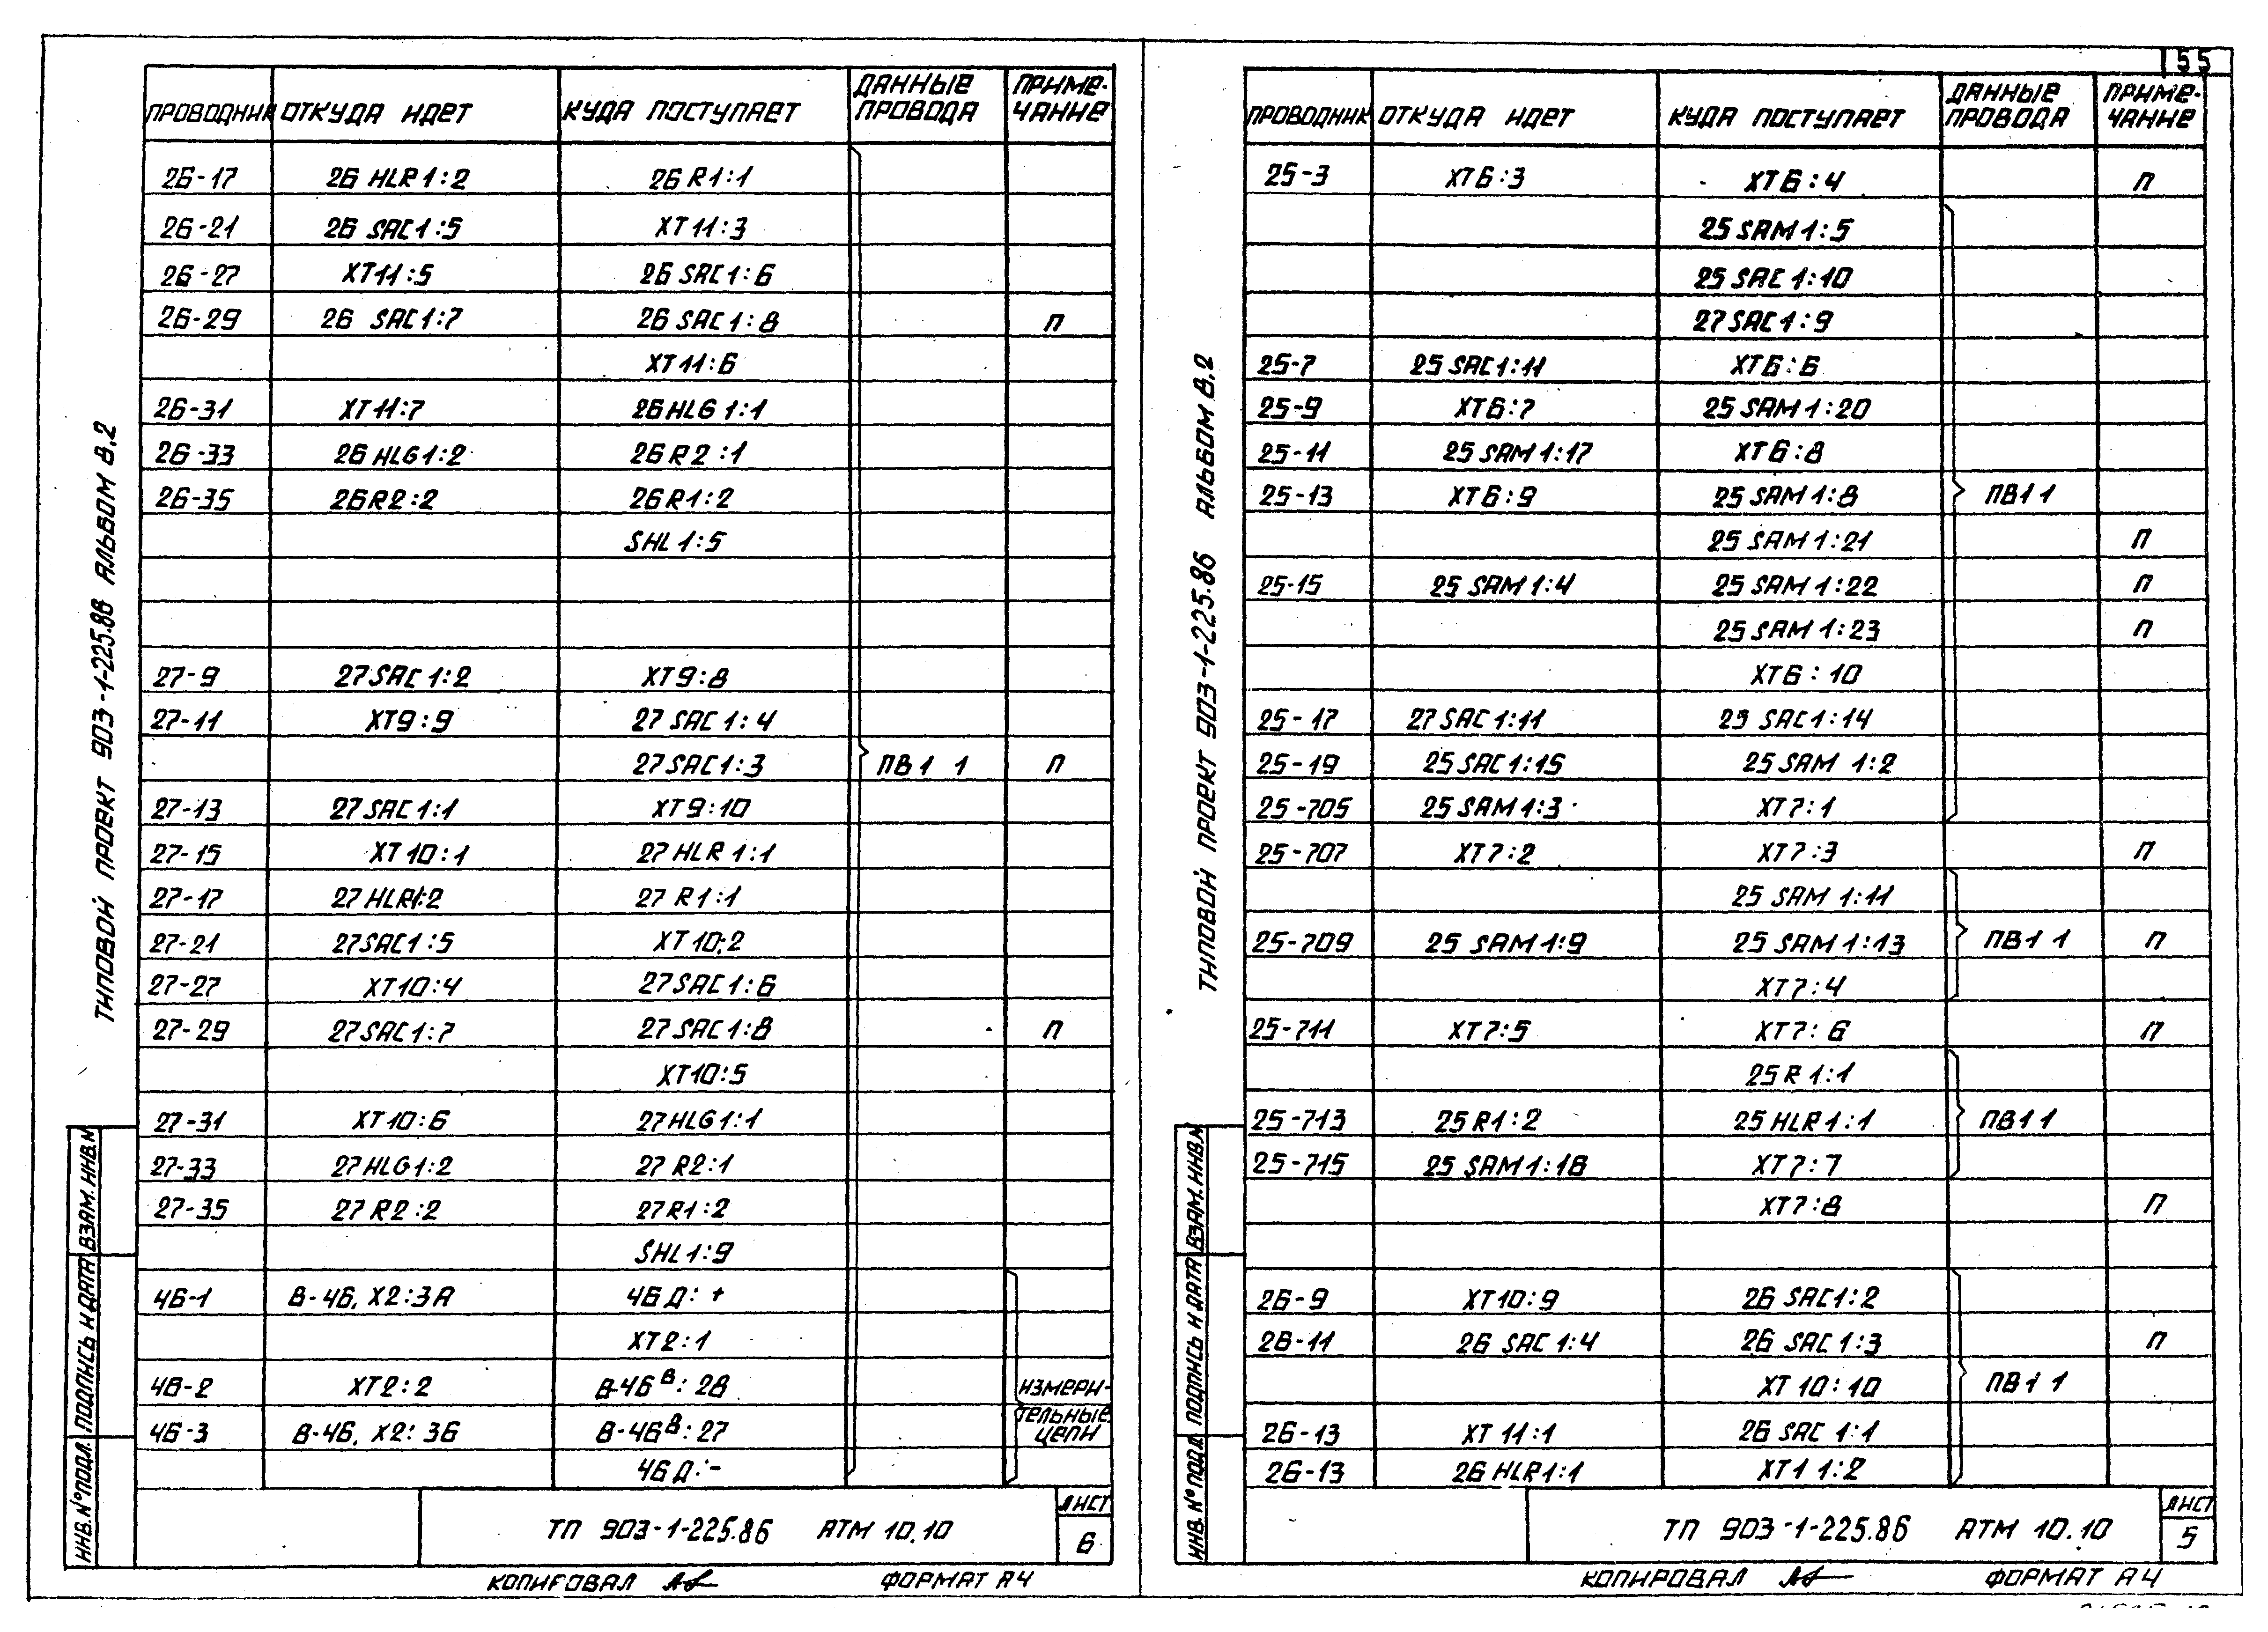 ТИПОВОЙ ПРОЕКТ 903-1-225.86 АЛЬБОМ 8.2
ВЗАМ. ИНВ.N
ПОДПИСЬ И ДАТА
ИНВ.N°ПОДЛ.
ПРОВОДНИК ОТКУДА ИДЕТ КУДА ПОСТУПАЕТ ДАННЫЕ ПРОВОДА ПРИМЕ-ЧАНИЕ
26-17 26 HLR1:2 26 R1:1
26-21 26 SAC1:5 XT11:3
26-27 XT11:5 26 SAC1:6
26-29 26 SAC1:7 26 SAC1:8 П
XT11:6
26-31 XT11:7 26HLG1:1
26-33 26HLG1:2 26R2:1
26-35 26R2:2 26R1:2
SHL1:5
27-9 27SAC1:2 XT9:8
27-11 XT9:9 27 SAC1:4
27SAC1:3 ПВ1 1 П
27-13 27SAC1:1 XT9:10
27-15 XT10:1 27HLR1:1
27-17 27HLR1:2 27 R1:1
27-21 27SAC1:5 XT10:2
27-27 XT10:4 27SAC1:6
27-29 27SAC1:7 27 SAC1:8 П
XT10:5
27-31 XT10:6 27HLG1:1
27-33 27HLG1:2 27 R2:1
27-35 27 R2:2 27R1:2
SHL1:9
4Б-1 В-4Б, X2:3A 4Б Д: +
XT2:1
4Б-2 XT2:2 В-4Б В: 28 ИЗМЕРИ-
4Б-3 В-4Б, X2: 3Б В-4Б В: 27 ТЕЛЬНЫЕ ЦЕПИ
4Б Д: -
ТП 903-1-225.86 АТМ 10.10
ЛИСТ
6
КОПИРОВАЛ
ФОРМАТ А4
155
ТИПОВОЙ ПРОЕКТ 903-1-225.86 АЛЬБОМ 8.2
ВЗАМ. ИНВ.N
ПОДПИСЬ И ДАТА
ИНВ.N°ПОДЛ
ПРОВОДНИК ОТКУДА ИДЕТ КУДА ПОСТУПАЕТ ДАННЫЕ ПРОВОДА ПРИМЕ-ЧАНИЕ
25-3 XT6:3 XT6:4 П
25 SAM1:5
25 SAC1:10
27SAC1:9
25-7 25 SAC1:11 XT6:6
25-9 XT6:7 25 SAM1:20
25-11 25 SAM1:17 XT6:8
25-13 XT6:9 25 SAM1:8 ПВ1 1
25 SAM1:21 П
25-15 25 SAM1:4 25 SAM1:22 П
25 SAM1:23 П
XT6:10
25-17 27 SAC1:11 25 SAC1:14
25-19 25 SAC1:15 25 SAM 1:2
25-705 25 SAM1:3 XT7:1
25-707 XT7:2 XT7:3 П
25 SAM1:11
25-709 25 SAM1:9 25 SAM1:13 ПВ1 1 П
XT7:4
25-711 XT7:5 XT7:6 П
25 R1:1
25-713 25 R1:2 25 HLR1:1 ПВ1 1
25-715 25 SAM1:18 XT7:7
XT7:8 П
26-9 XT10:9 26 SAC1:2
26-11 26 SAC1:4 26 SAC1:3 П
XT10:10 ПВ1 1
26-13 XT11:1 26 SAC1:1
26-13 26 HLR1:1 XT11:2
ТП 903-1-225.86 АТМ 10.10
ЛИСТ
5
КОПИРОВАЛ
ФОРМАТ А4